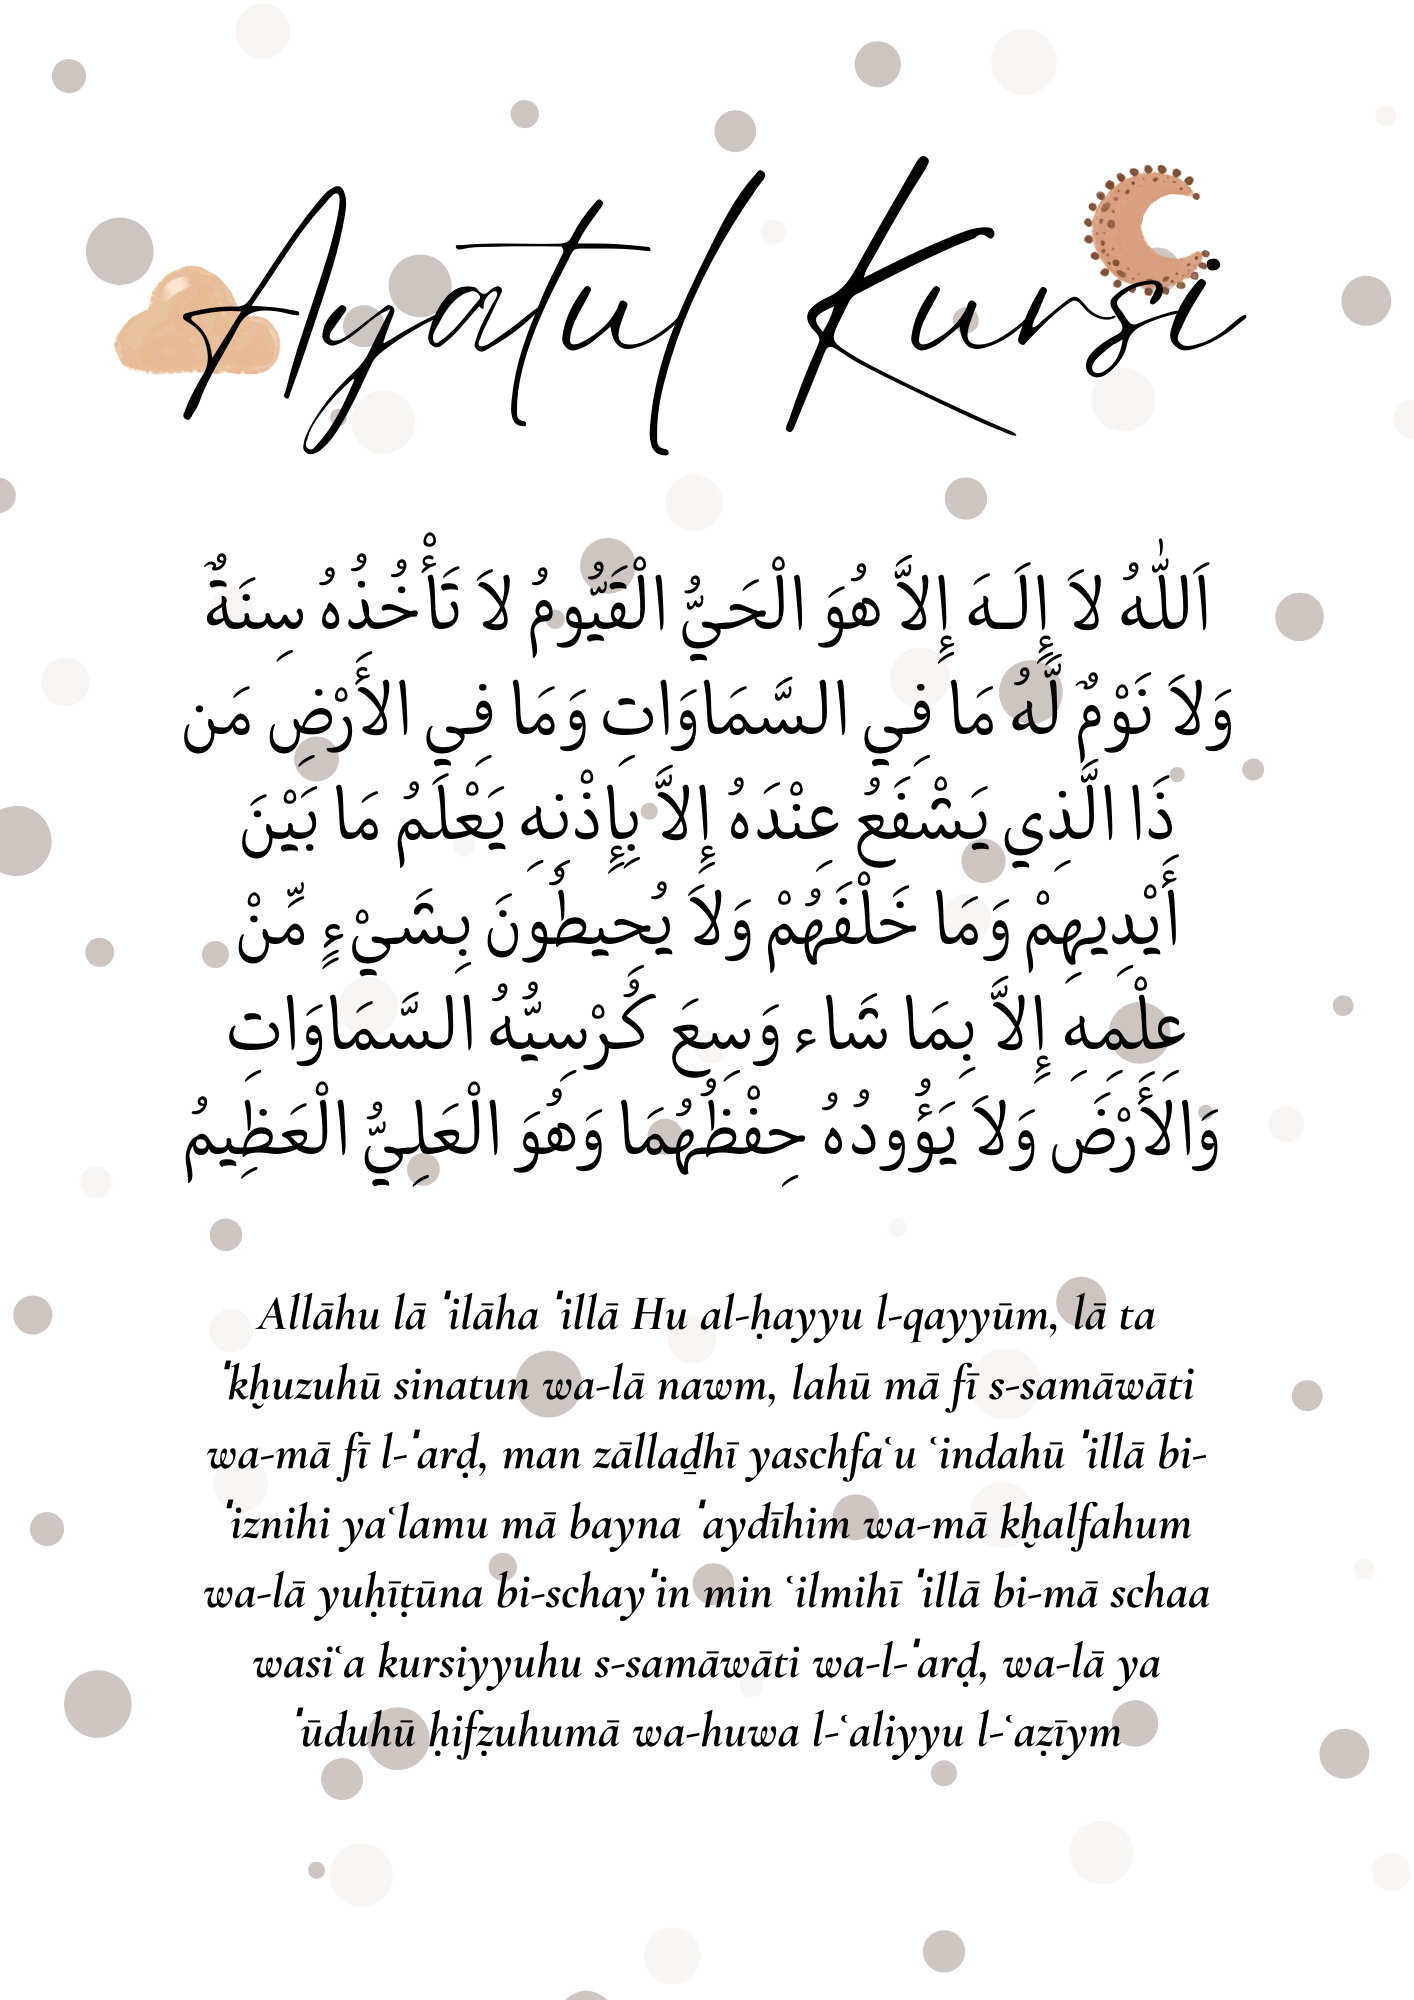 Ayatul Kursi
اَللّٰهُ لاَ إِلَـهَ إِلاَّ هُوَ الْحَيُّ الْقَيُّومُ لاَ تَأْخُذُهُ سِنَةٌ
وَلاَ نَوْمٌ لَّهُ مَا فِي السَّمَاوَاتِ وَمَا فِي الأَرْضِ مَن
ذَا الَّذِي يَشْفَعُ عِنْدَهُ إِلاَّ بِإِذْنِهِ يَعْلَمُ مَا بَيْنَ
أَيْدِيهِمْ وَمَا خَلْفَهُمْ وَلاَ يُحِيطُونَ بِشَيْءٍ مِّنْ
عِلْمِهِ إِلاَّ بِمَا شَاء وَسِعَ كُرْسِيُّهُ السَّمَاوَاتِ
وَالأَرْضَ وَلاَ يَؤُودُهُ حِفْظُهُمَا وَهُوَ الْعَلِيُّ الْعَظِيمُ
Allāhu lā ʹilāha ʹillā Hu al-ḥayyu l-qayyūm, lā ta
ʹkḫuzuhū sinatun wa-lā nawm, lahū mā fī s-samāwāti
wa-mā fī l-ʹarḍ, man zālladẖī yaschfaʿu ʿindahū ʹillā bi-
ʹiznihi yaʿlamu mā bayna ʹaydīhim wa-mā kḫalfahum
wa-lā yuḥīṭūna bi-schayʹin min ʿilmihī ʹillā bi-mā schaa
wasiʿa kursiyyuhu s-samāwāti wa-l-ʹarḍ, wa-lā ya
ʹūduhū ḥifẓuhumā wa-huwa l-ʿaliyyu l-ʿaẓīym